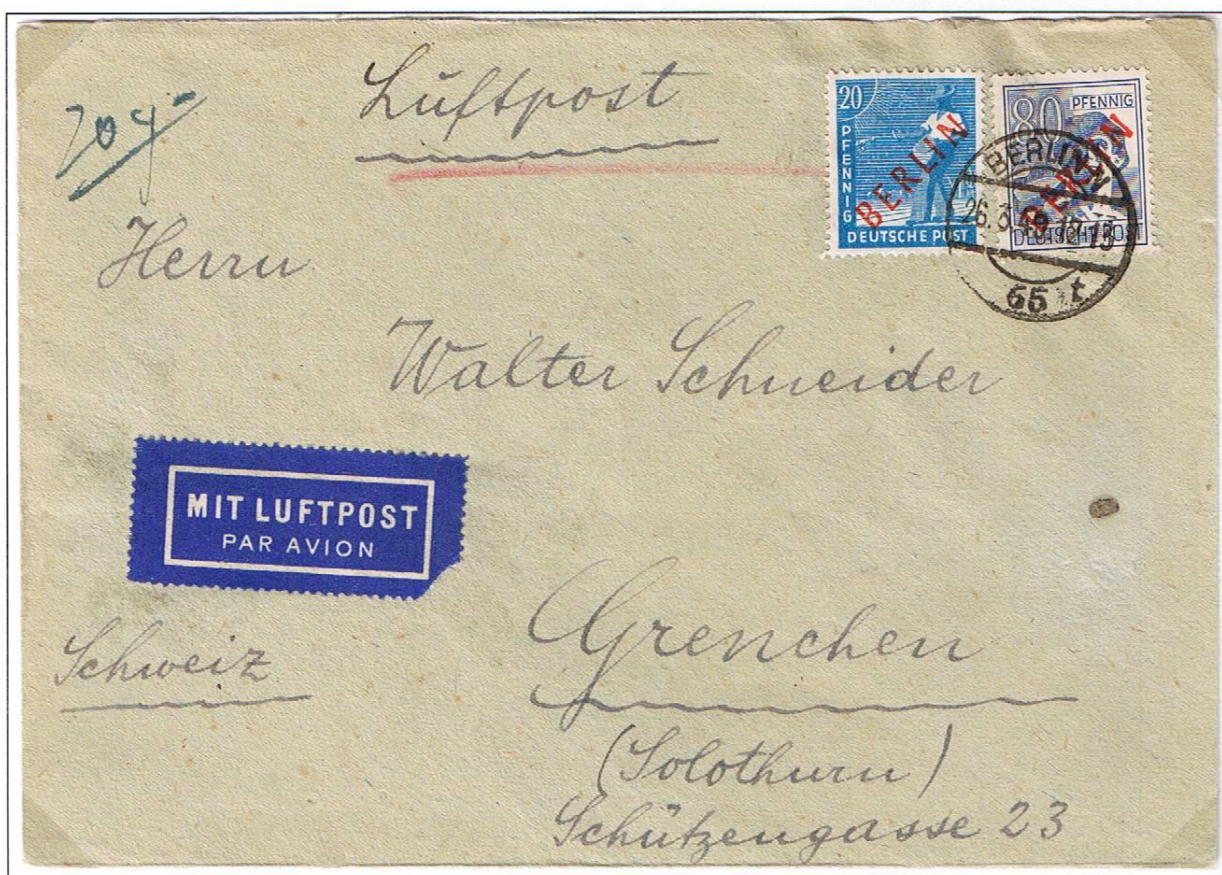 Luftpost
20 g
20
PFENNIG
BERLIN
DEUTSCHE POST
80 PFENNIG
BERLIN
DEUTSCHE POST
BERLIN N
26.3.49.12-13
65 t
Herrn
Walter Schneider
MIT LUFTPOST
PAR AVION
Schweiz
Grenchen
(Solothurn)
Schützengasse 23